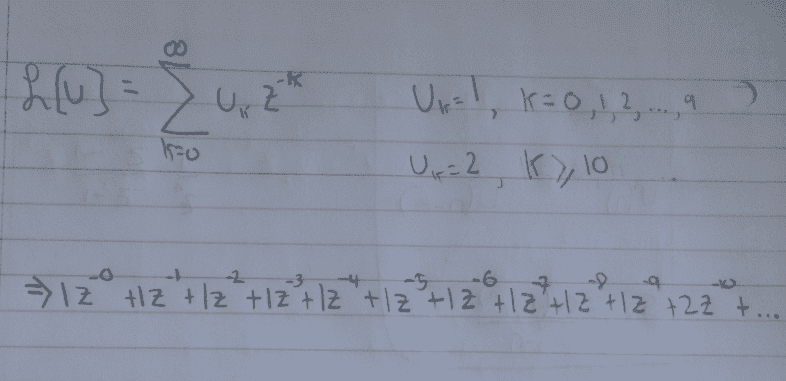 ℒ{u} = ∑_{k=0}^{∞} u_k z^{-k}    u_k=1, k=0,1,2,...,9 )
u_k=2, k≥10 .
⇒ 1z^{-0} +1z^{-1} +1z^{-2} +1z^{-3} +1z^{-4} +1z^{-5} +1z^{-6} +1z^{-7} +1z^{-8} +1z^{-9} +2z^{-10} + ...